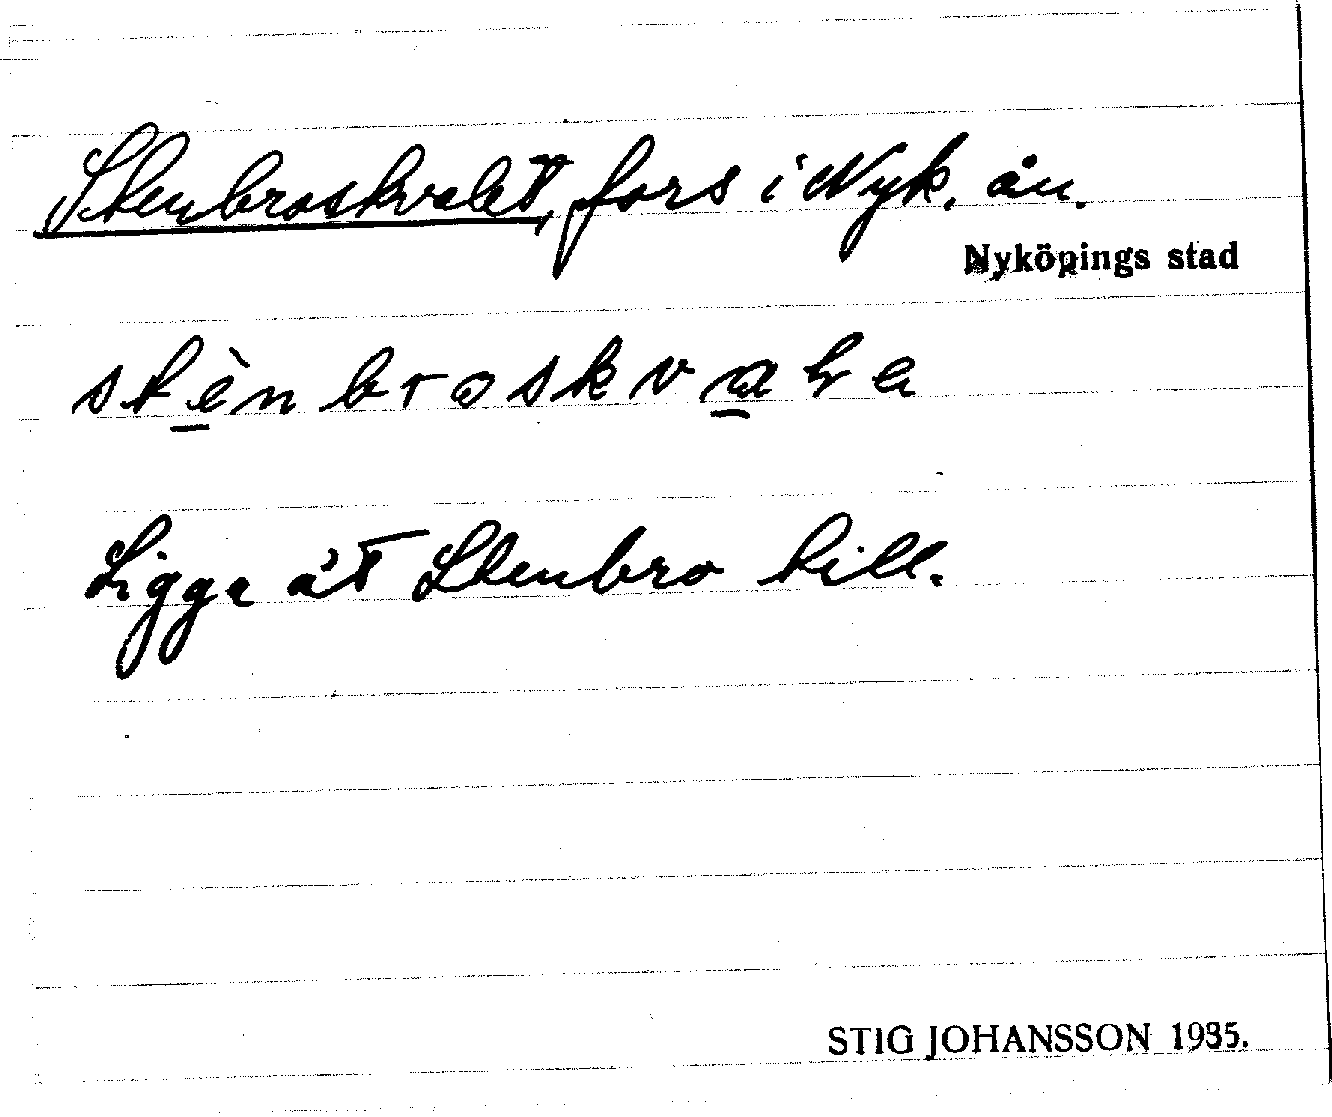 Stenbroskvalet, fors i Nyk. ån.
Nyköpings stad
stènbroskvaɫa
Ligga åt Stenbro till.
STIG JOHANSSON 1935.